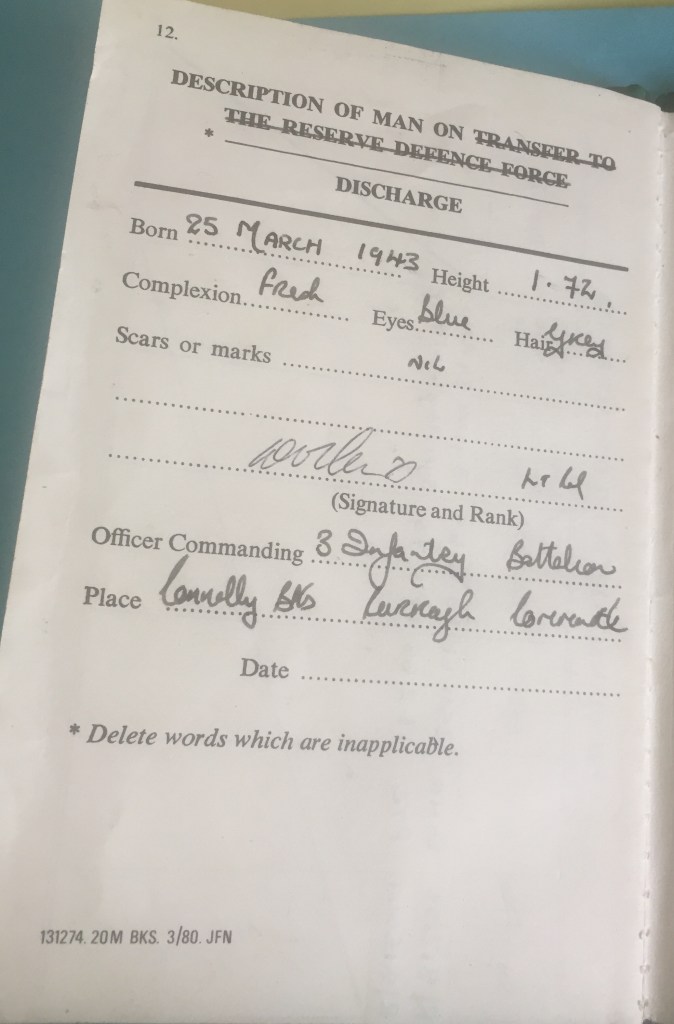 12.
DESCRIPTION OF MAN ON TRANSFER TO
* THE RESERVE DEFENCE FORCE
DISCHARGE
Born 25 MARCH 1943 Height 1.72.
Complexion Fresh Eyes blue Hair grey
Scars or marks NIL
Lt Col
(Signature and Rank)
Officer Commanding 3 Infantry Battalion
Place Connolly BKS Curragh Command
Date
* Delete words which are inapplicable.
131274. 20M BKS. 3/80. JFN